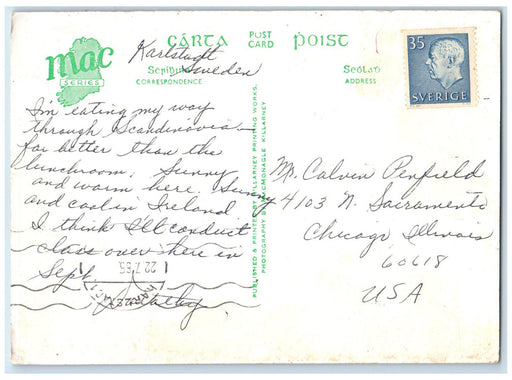 mac
SERIES
CÁRTA POST CARD POIST
Karlstadt
Sweden
CORRESPONDENCE
ADDRESS
35
SVERIGE
I'm eating my way
through Scandinavia
far better than the
lunchroom. Sunny
and warm here. Sunny
and cool in Ireland
I think I'll conduct
class over here in
Sept
22.7.65
PUBLISHED & PRINTED BY KILLARNEY PRINTING WORKS.
PHOTOGRAPHY BY MCMONAGLE KILLARNEY
Mr. Calvin Penfield
4103 N. Sacramento
Chicago Illinois
60618
USA